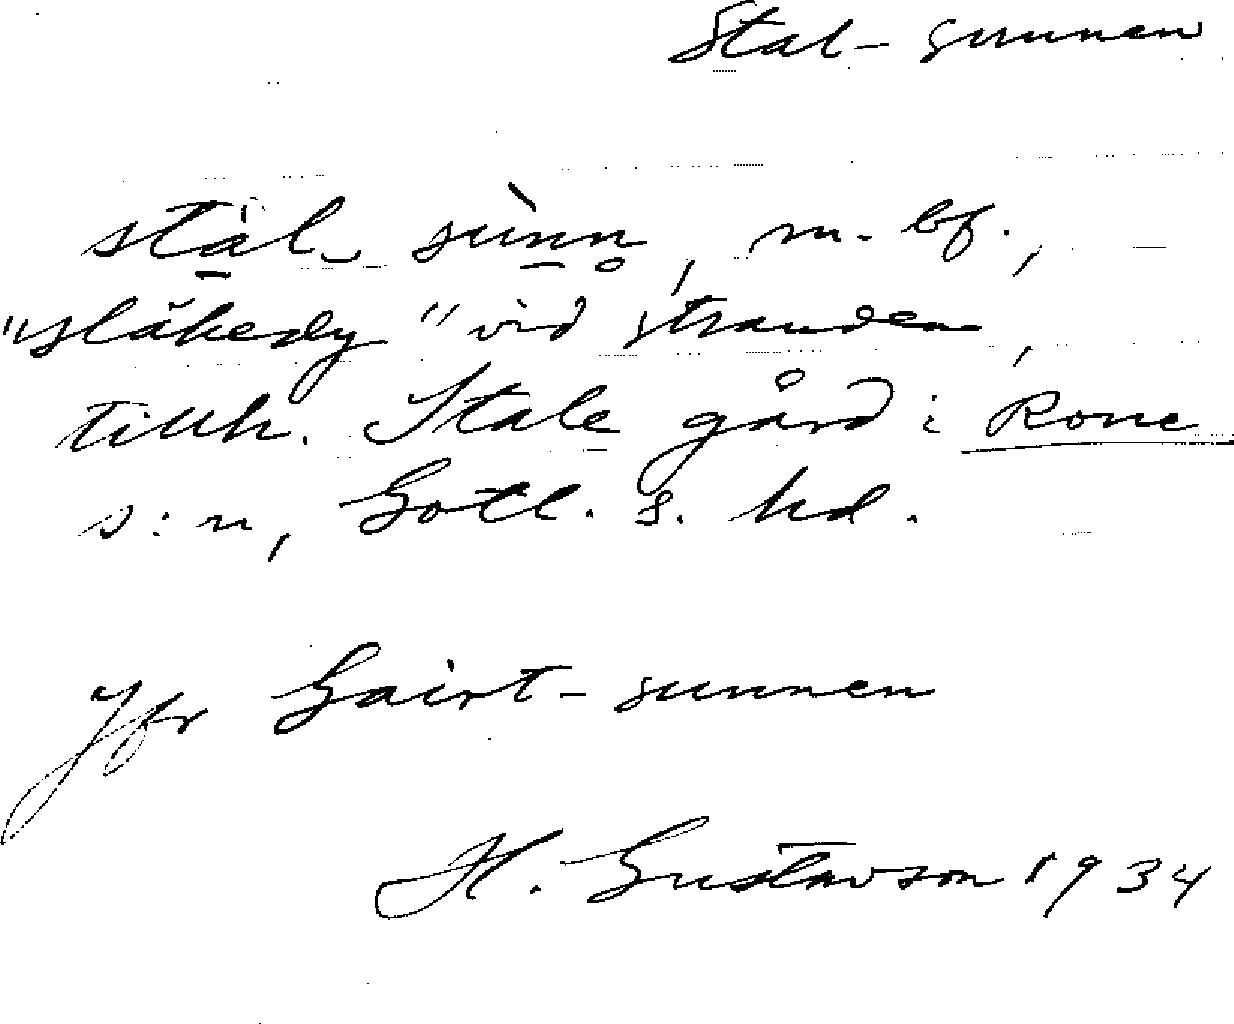 Stal-sunnen
stäl-sùnn, m. bf.,
"släkedy" vid stranden,
tillh. Stale gård i Rone
s:n, Gotl. s. hd.
Jfr Gairt-sunnen
H. Gustavson 1934